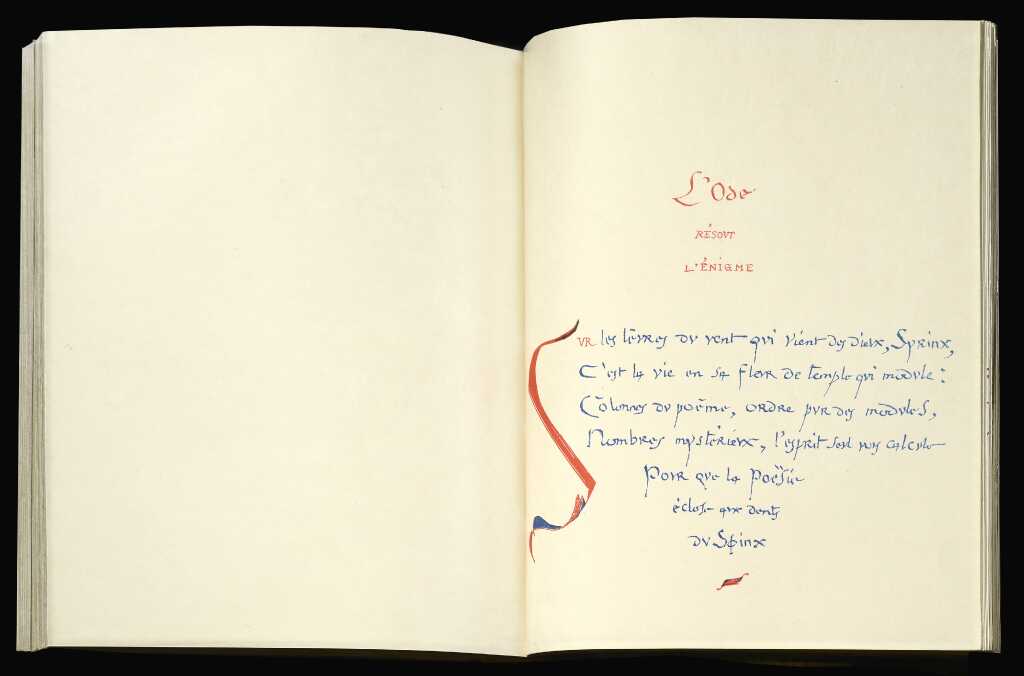 L'Ode
RÉSOVT
L'ÉNIGME
SVR les lèvres dv vent qvi vient des dievx, Syrinx,
C'est la vie en sa fleur de temple qvi modvle :
Colonnes dv poëme, ordre pvr des modvles,
Nombres mystèrievx, l'esprit sevl vovs calcvle
Povr qve la Poësie
éclose qve dents
dv Sphinx